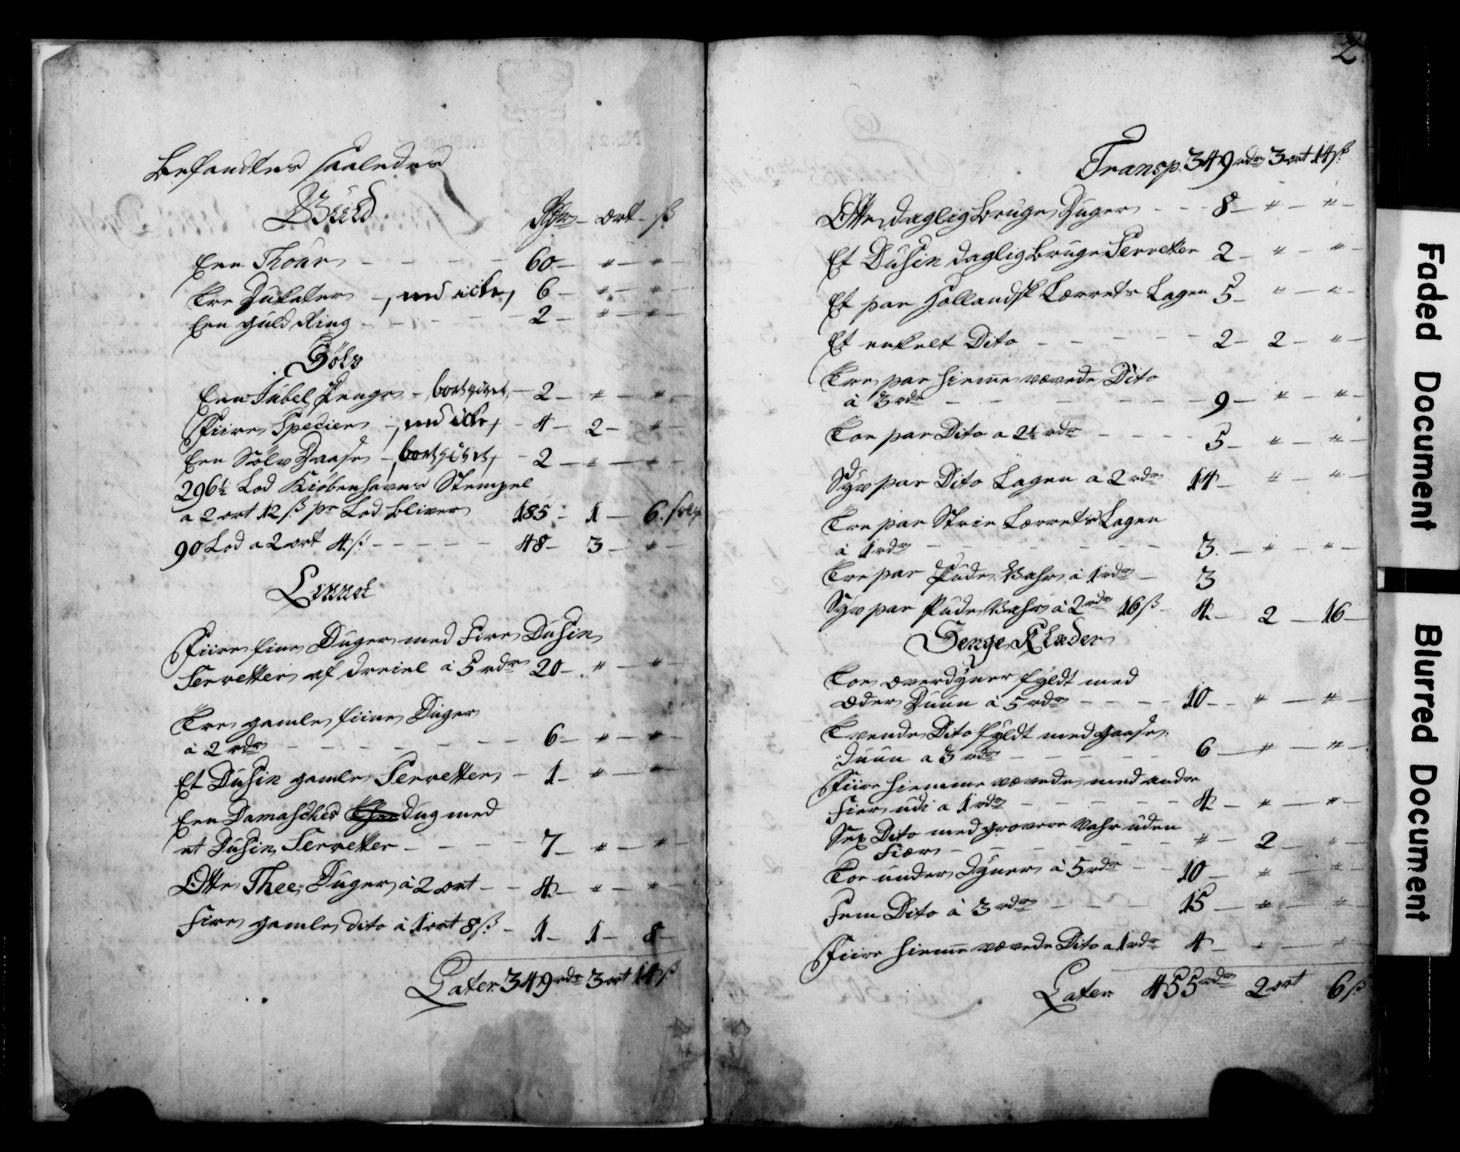 Befandtes saaledes
Guld Rdr — ort — ß
Een Thour — 60 — " — "
Tre Ducater — , ved icke, 6 — " — "
Een guld Ring — 2 — " — "
Sölv
Een Tabel Penge — , bortgivet, — 2 — " — "
Fiire Specier — , ved icke, — 4 — 2 — "
Een Sölv Daase — , bortgivet, — 2 — " — "
296½ Lod Kiöbenhavns Stempel
a 2 ort 12 ß pr Lod bliver 185 — 1 — 6. solgt
90 Lod a 2 ort 4 ß — 48 — 3 — "
Linnet
Fiire fine Duger med Fire Dusin
Servetter af dreiel à 5 rdr 20 — " — "
Tre gamle fiine Duger
à 2 rdr — 6 — " — "
Et Dusin gamle Servetter — 1 — " — "
Een Damasches dug med
et Dusin Servetter — 7 — " — "
Otte Thee Duger à 2 ort — 4 — " — "
Fire gamle dito à 1 ort 8 ß — 1 — 1 — 8
Later 349 rdr 3 ort 14 ß
2
Transp. 349 rdr 3 ort 14 ß
Otte daglig bruge Duger — 8 — " — "
Et Dusin daglig bruge Servetter 2 — " — "
Et par Hollandsk Lærrets Lagen 5 — " — "
Et enkelt Dito — 2 — 2 — "
Tre par hiemevævede Dito
à 3 rdr — 9 — " — "
Toe par Dito a 2½ rdr — 5 — " — "
Syv par Dito Lagen a 2 rdr 14 — " — "
Tre par Strie Lærrets Lagen
à 1 rdr — 3 — " — "
Tre par Pude Vahr à 1 rdr — 3
Syv par Pude Vahr à 2 16 ß — 4 — 2 — 16
Senge Klæder
Toe overdyner fyldt med
Æder Duun à 5 rdr — 10 — " — "
Tvende Dito fyldt med gaase
Duun a 3 rdr — 6 — " — "
Fiire hiemmevævede med andre
Fier udi a 1 rdr — 4 — " — "
Sex Dito med grovere Vahr uden
Fiær — " — 2 — "
Toe under Dyner à 5 rdr — 10 — " — "
Fem Dito à 3 rdr — 15 — " — "
Fiire hiemmevævede Dito a 1 rdr 4 — " — "
Later 455 rdr 2 ort 6 ß
Faded Document
Blurred Document